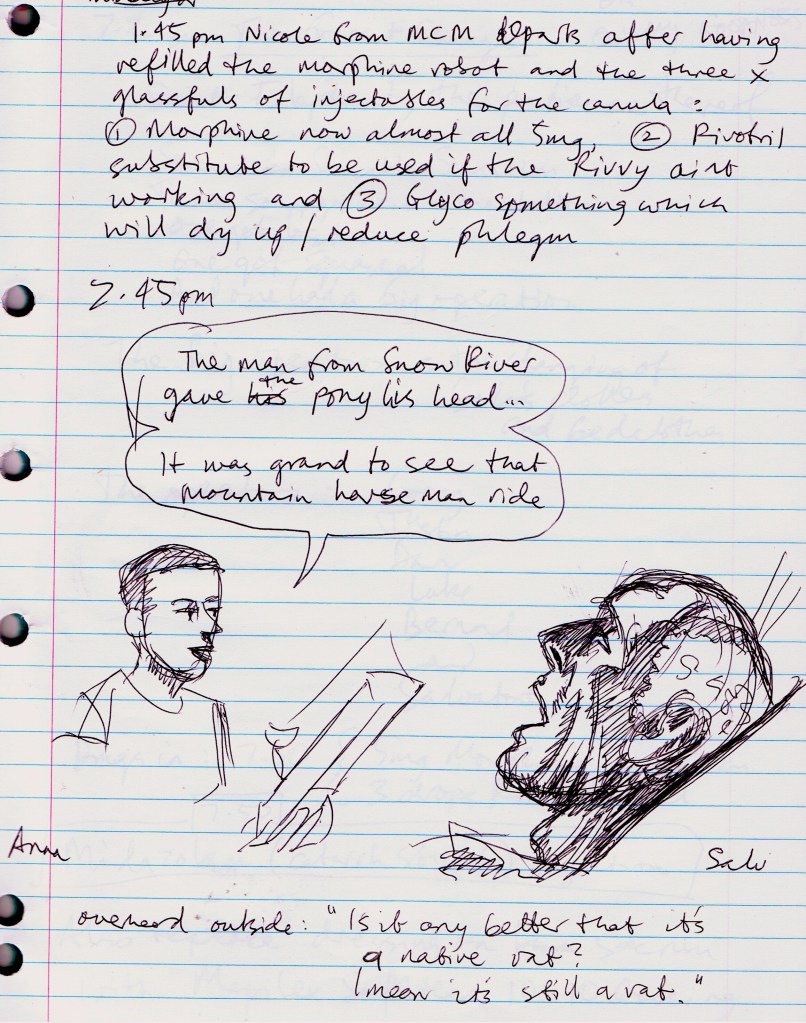 1.45 pm Nicole from MCM departs after having
refilled the morphine robot and the three x
glassfuls of injectables for the canula :
① Morphine now almost all 5mg, ② Rivotril
substitute to be used if the Rivvy aint
working and ③ Glyco something which
will dry up / reduce phlegm
2.45pm
The man from Snow River
gave his the pony his head...
It was grand to see that
mountain horseman ride
Anna
Salv
overheard outside: "Is it any better that it's
a native rat?
I mean it's still a rat."